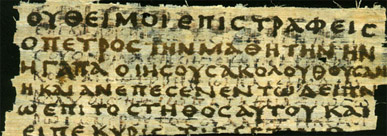 ΟΥΘΕΙΜΟΙΕΠΙϹΤΡΑΦΕΙϹ
ΟΠΕΤΡΟϹΤΗΝΜΑΘΗΤΗΝΗΝ
ΗΓΑΠΑΟΙΗϹΟΥϹΑΚΟΛΟΥΘΟΥϹΑΝ
ΗΚΑΙΑΝΕΠΕϹΕΝΕΝΤΩΔΕΙΠΝ
ΩΕΠΙΤΟϹΤΗΘΟϹΑΥΤΟΥΚΑΙ
ΕΙΠΕΚΥΡΙΕ